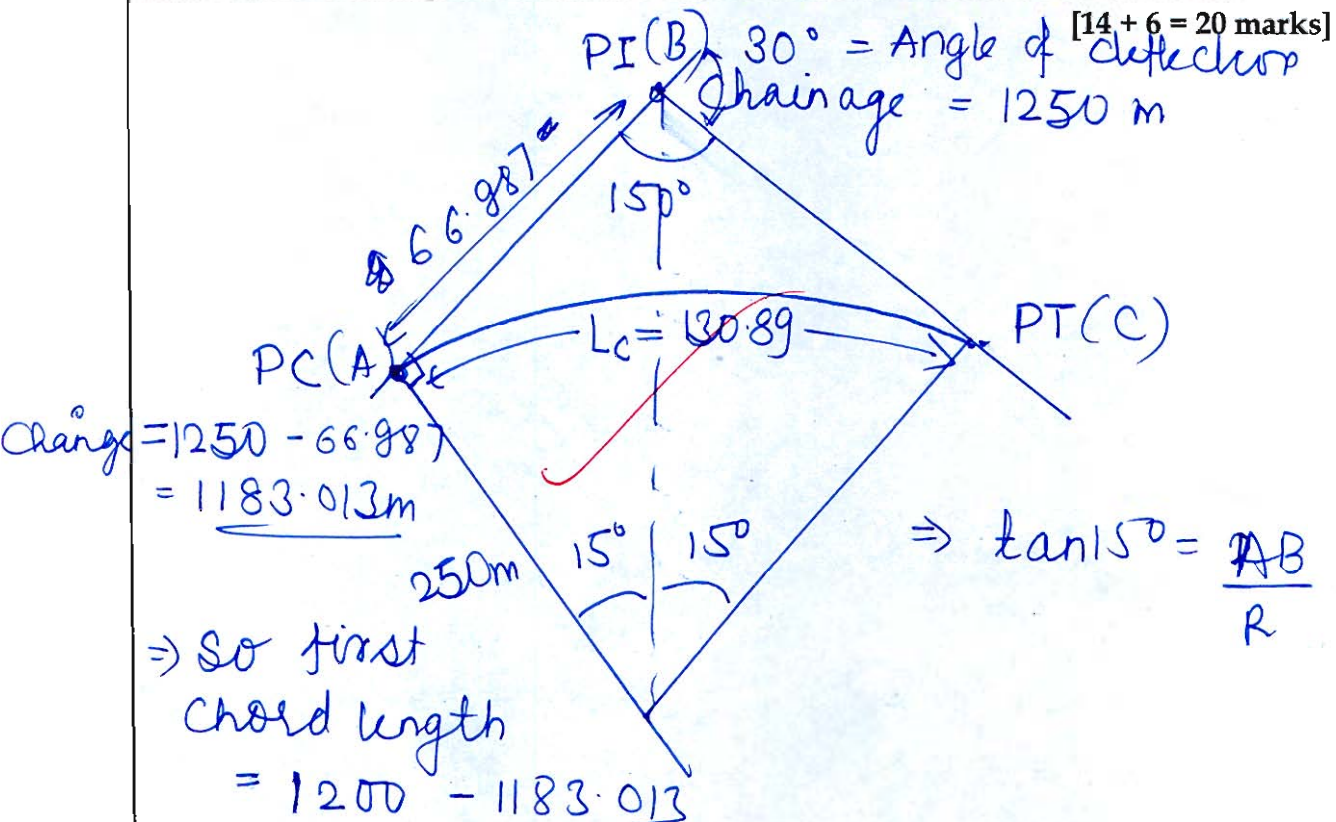 [14 + 6 = 20 marks]
PI(B) 30° = Angle of deflection
Chainage = 1250 m
66.987
150°
Lc = 130.89
PC(A)
PT(C)
= 1250 - 66.987
= 1183.013m
250m
15° 15°
⇒ tan15° = AB
R
⇒ So first
chord length
= 1200 - 1183.013